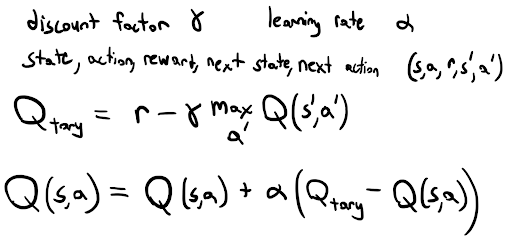 discount factor γ learning rate α
state, action, reward, next state, next action (s,a,r,s',a')
Q_targ = r - γ max_a' Q(s',a')
Q(s,a) = Q(s,a) + α(Q_targ - Q(s,a))